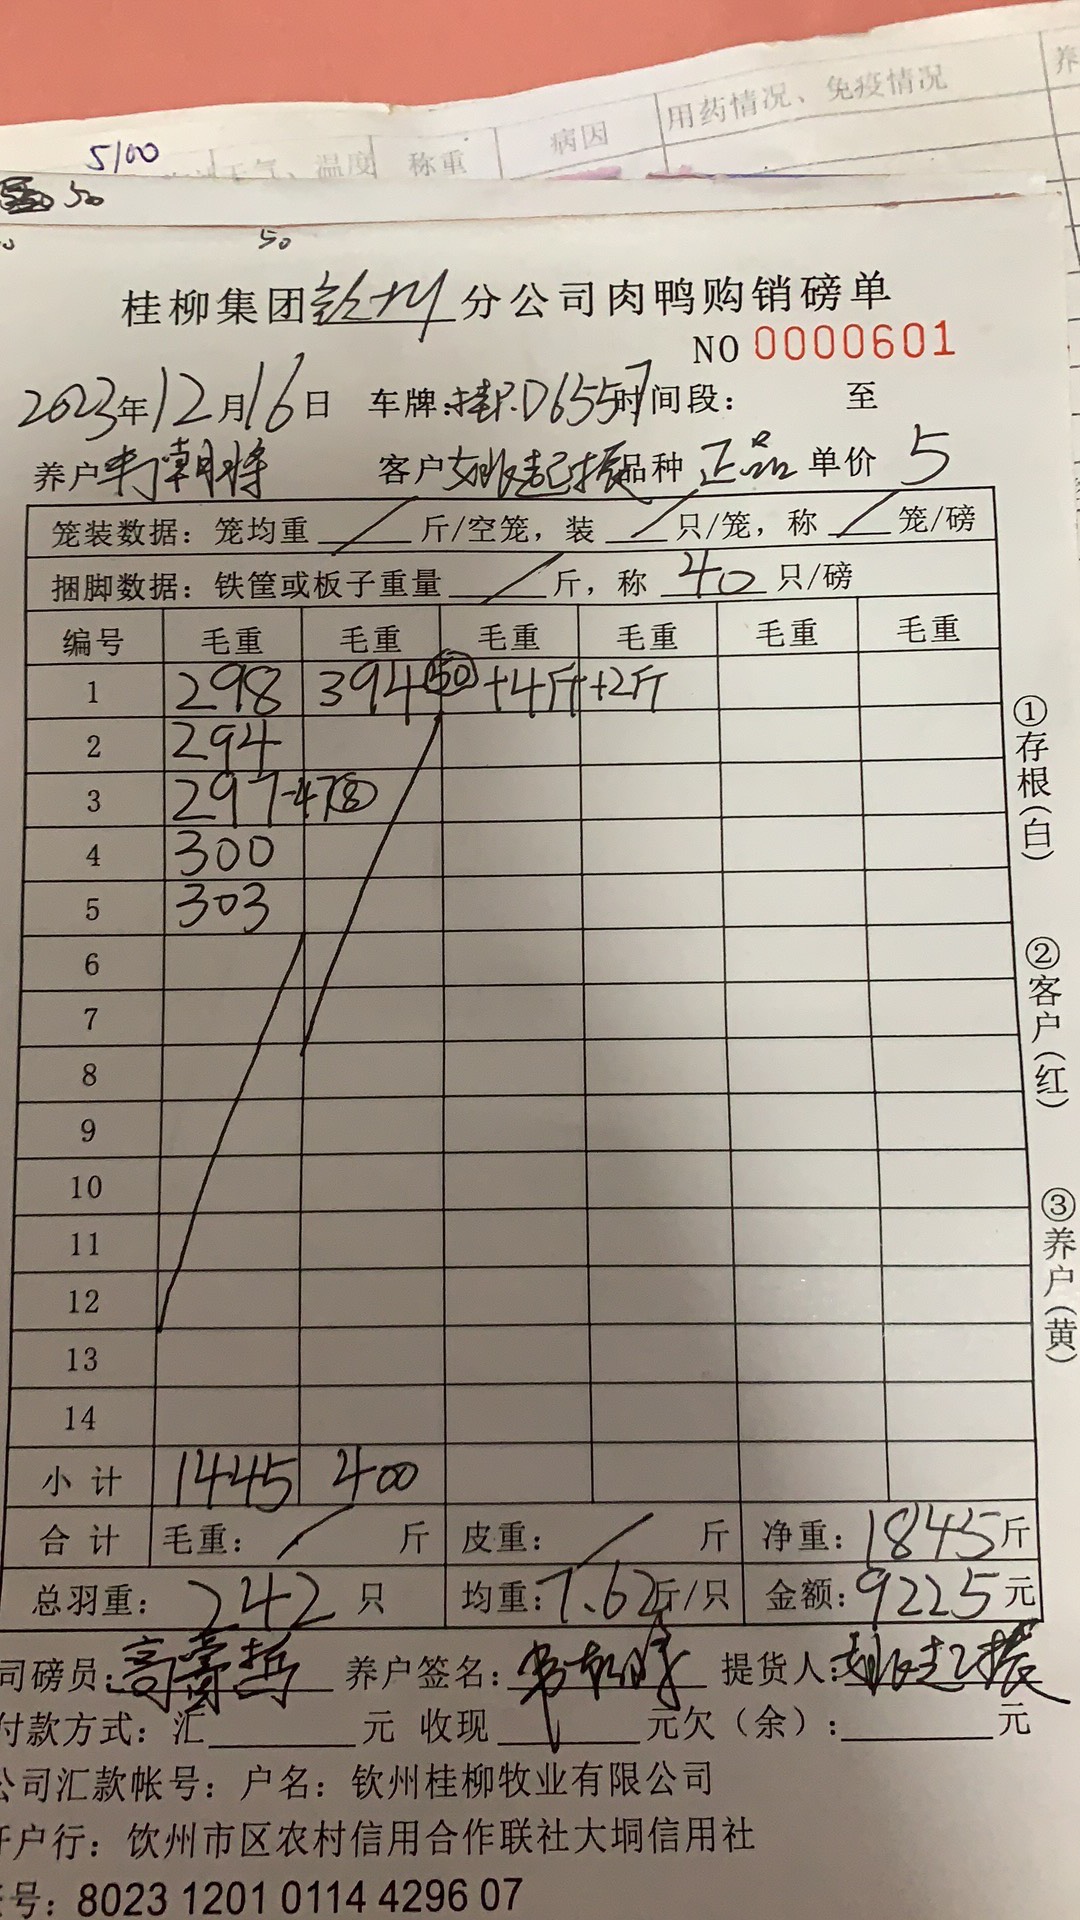 养
用药情况、免疫情况
病因
称重
天气、温度
5100
50
50
桂柳集团钦州分公司肉鸭购销磅单
NO 0000601
2023年12月16日 车牌:桂P.D6557时间段: 至
养户韦朝将 客户姚起振品种 正品 单价 5
笼装数据: 笼均重 / 斤/空笼, 装 / 只/笼, 称 / 笼/磅
捆脚数据: 铁筐或板子重量 / 斤, 称 40 只/磅
编号 毛重 毛重 毛重 毛重 毛重 毛重
1 298 394 50 +4斤 +2斤
2 294
3 297-47⑧
4 300
5 303
6
7
8
9
10
11
12
13
14
小计 1445 400
合计 毛重: / 斤 皮重: / 斤 净重: 1845斤
总羽重: 242 只 均重:7.62斤/只 金额:9225元
司磅员: 养户签名: 提货人:姚起振
付款方式: 汇 元 收现 元欠(余): 元
公司汇款帐号: 户名: 钦州桂柳牧业有限公司
开户行: 钦州市区农村信用合作联社大垌信用社
账号: 8023 1201 0114 4296 07
①存根(白)
②客户(红)
③养户(黄)